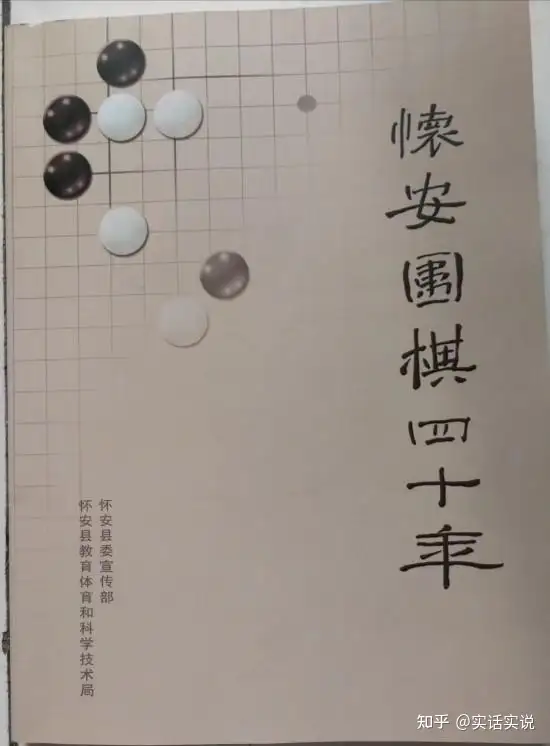 懷安圍棋四十年
怀安县委宣传部
怀安县教育体育和科学技术局
知乎 @实话实说